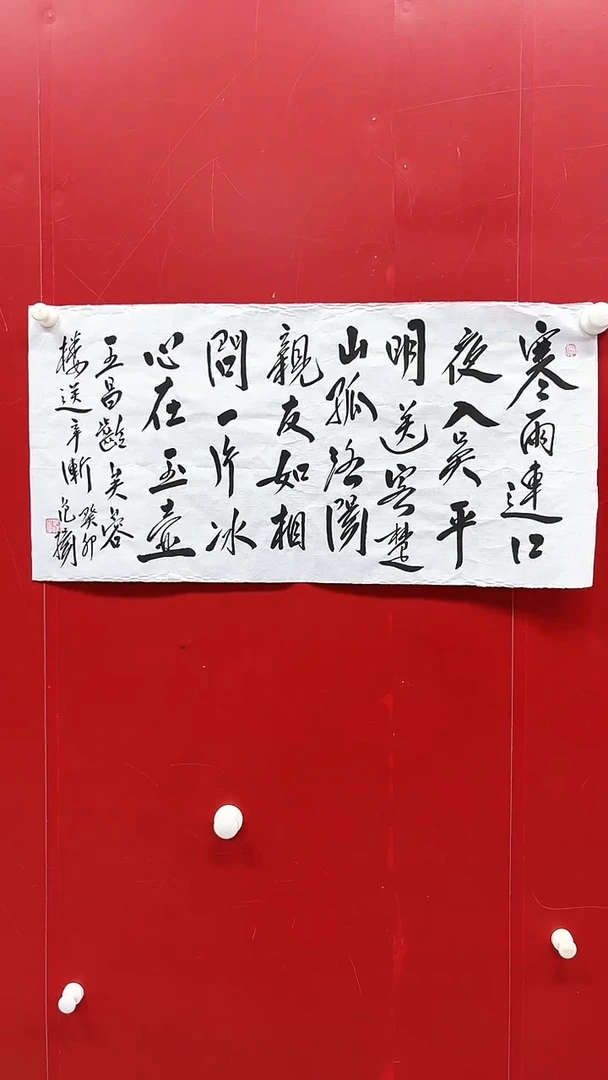 寒雨連江
夜入吳平
明送客楚
山孤洛陽
親友如相
問一片冰
心在玉壺
王昌齡芙蓉
樓送辛漸
癸卯